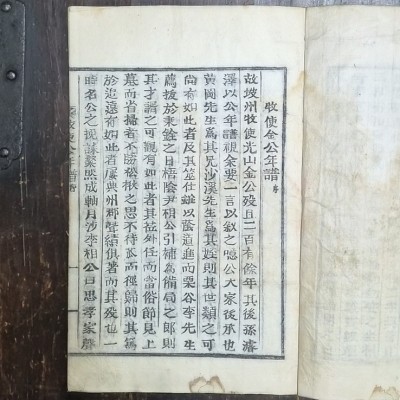 牧使金公年譜序
故坡州牧使光山金公歿且二百有餘年其後孫濬
澤以公年譜視余要一言以敘之噫公大家後承也
黃岡先生爲其兄沙溪先生爲其姪則其世類之可
尚有如此者及其筮仕雖以蔭道進而栗谷李先生
薦拔於東銓之日梧陰尹相公引補爲備局之郞則
其才謂之可觀有如此者其莅外任而當俗節見上
墓而省掃者不勝愴掀之思不待 而徑歸則其篤
於追遠有如此者屢典州郡聲績俱著而其歿也一
時名公之挽誄纍然成軸月沙李相公曰思孝家聲
牧使公年譜序
一